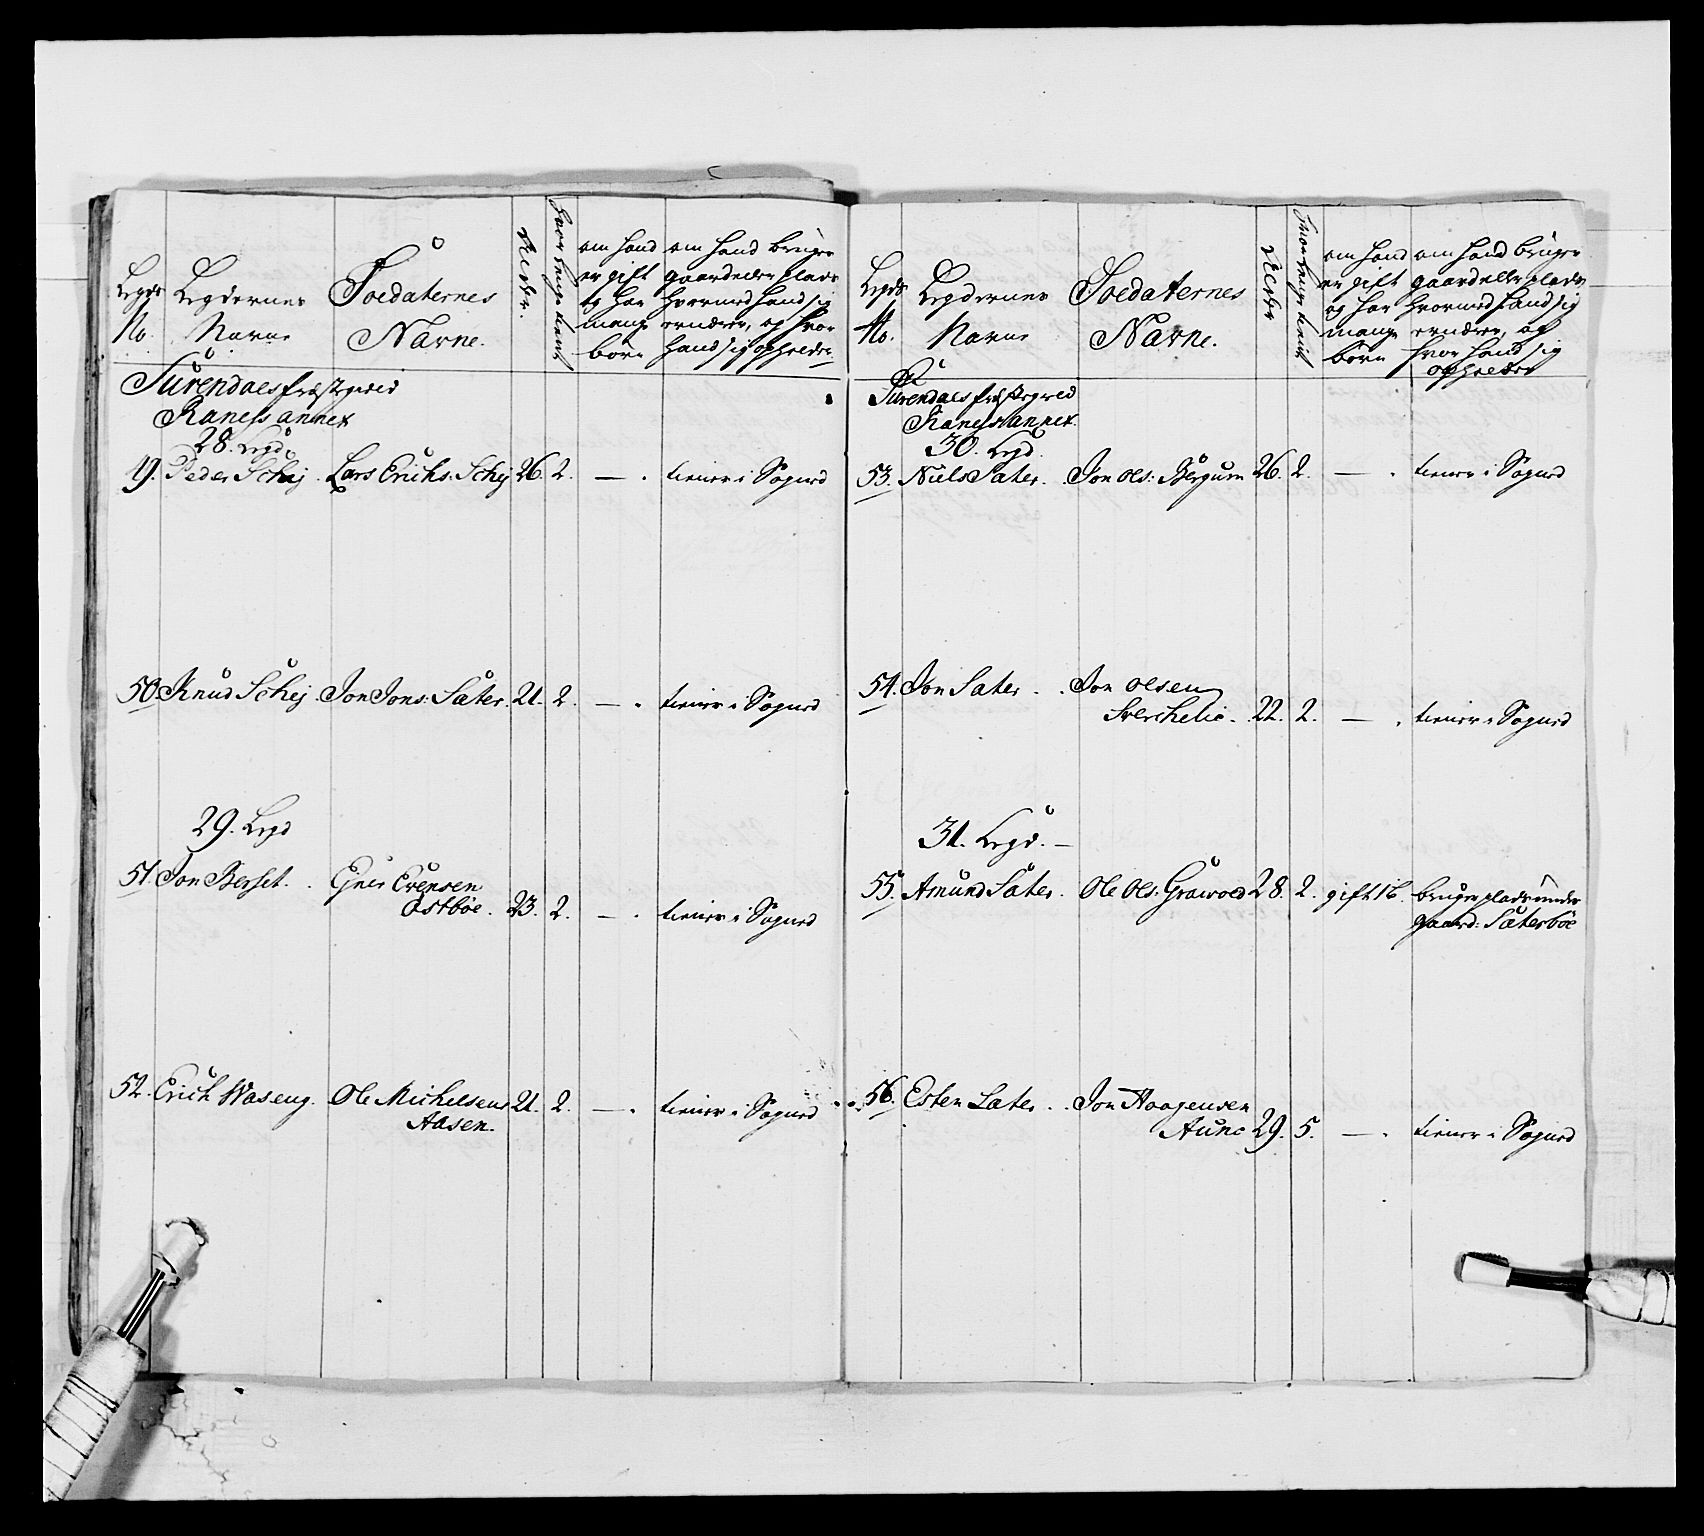 Legds No.
Legdernes Navne
Soldaternes Navne.
Alder.
hvor lenge tient
om hand er gift og har mange børn
om hand bruger gaard eller plads hvormed hand sig ernærer, og hvor hand sig opholder
Surendals Præstegield
Ranes annex
28. Legd.
49. Peder Schej. Lars Erichs: Schej 26. 2. — . tiener i Sogned
50. Knud Schej. Jon Jons: Sæter. 21. 2. — . tiener i Sogned
29. Legd
51. Jon Berset. Ejner Evensen
Østbøe. 23. 2. — . tiener i Sogned
52. Erich Waseng. Ole Michelsens 21. 2. — . tiener i Sogned
Aasen.
Legds No.
Legdernes Navne
Soldaternes Navne.
Alder
hvor lenge tient
om hand er gift og har mange børn
om hand bruger gaard eller plads hvormed hand sig ernærer, og hvor hand sig opholder
Surendals Præstegield
Ranes annex.
30. Legd.
53. Niels Sæter. Jon Ols: Bergum 26. 2. — . tiener i Sogned
54. Jon Sæter. Jon Olsen
Sverchelie. 22. 2. — . tiener i Sogned
31. Legd. —
55. Amund Sæter. Ole Ols: Grawold 28. 2. gift 1 b. bruger plads under
gaard: Sæterbøe
56. Esten Sæter. Jon Haagensen
Aune 29. 5. — . tiener i Sogned